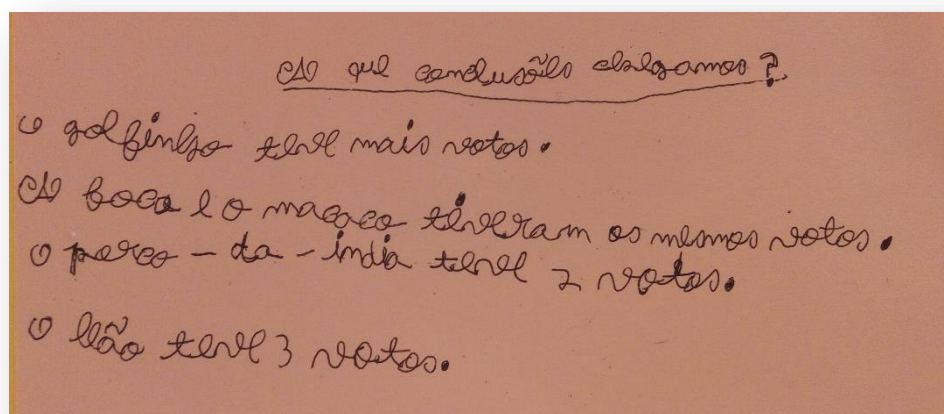 A que conclusões chegamos?
O golfinho teve mais votos.
A foca e o macaco tiveram os mesmos votos.
O porco-da-índia teve 2 votos.
O leão teve 3 votos.